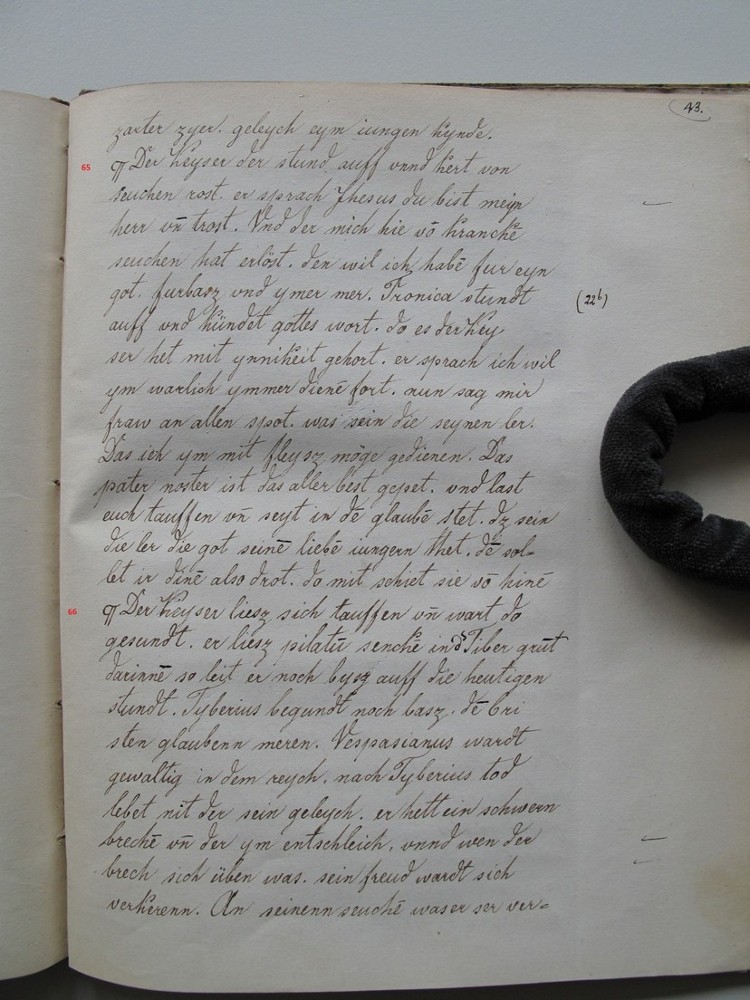 43.
zarter zyer. geleych eym iungen kynde.
65 ¶ Der keyser der stund auff vnnd kert von
seuchen rost. er sprach Jhesus du bist meyn
herr vn̄ trost. Vnd der mich hie vō kranckē
seuchen hat erlöst. den wil ich habē fur eyn
got. furbasz vnd ymer mer. Fronica stundt (22b)
auff vnd kündet gottes wort. do es der key
ser het mit ynnikeit gehort. er sprach ich wil
ym warlich ymmer dienē fort. nun sag mir
fraw an allen spot. was sein die seynen ler.
Das ich ym mit fleysz möge gedienen. Das
pater noster ist das aller best gepet. vnd last
euch tauffen vn̄ seyt in dē glaubē stet. dz sein
die ler die got seinē liebē iungern thet. dē sol=
let ir dinē also drot. do mit schiet sie vō hinē
66 ¶ Der keyser liesz sich tauffen vn̄ wart do
gesundt. er liesz pilatū senckē in d Tiber grūt
darinnē so leit er noch bysz auff die heutigen
stundt. Tyberius begundt noch basz. dē Cri
sten glaubenn meren. Vespasianus wardt
gewaltig in dem reych. nach Tyberius tod
lebet nit der sein geleych. er hett ein schwern
brechē vn̄ der ym entschleich. vnnd wen der
brech sich üben was. sein freud wardt sich
verkerenn. An seinenn seuchē was er ser ver=